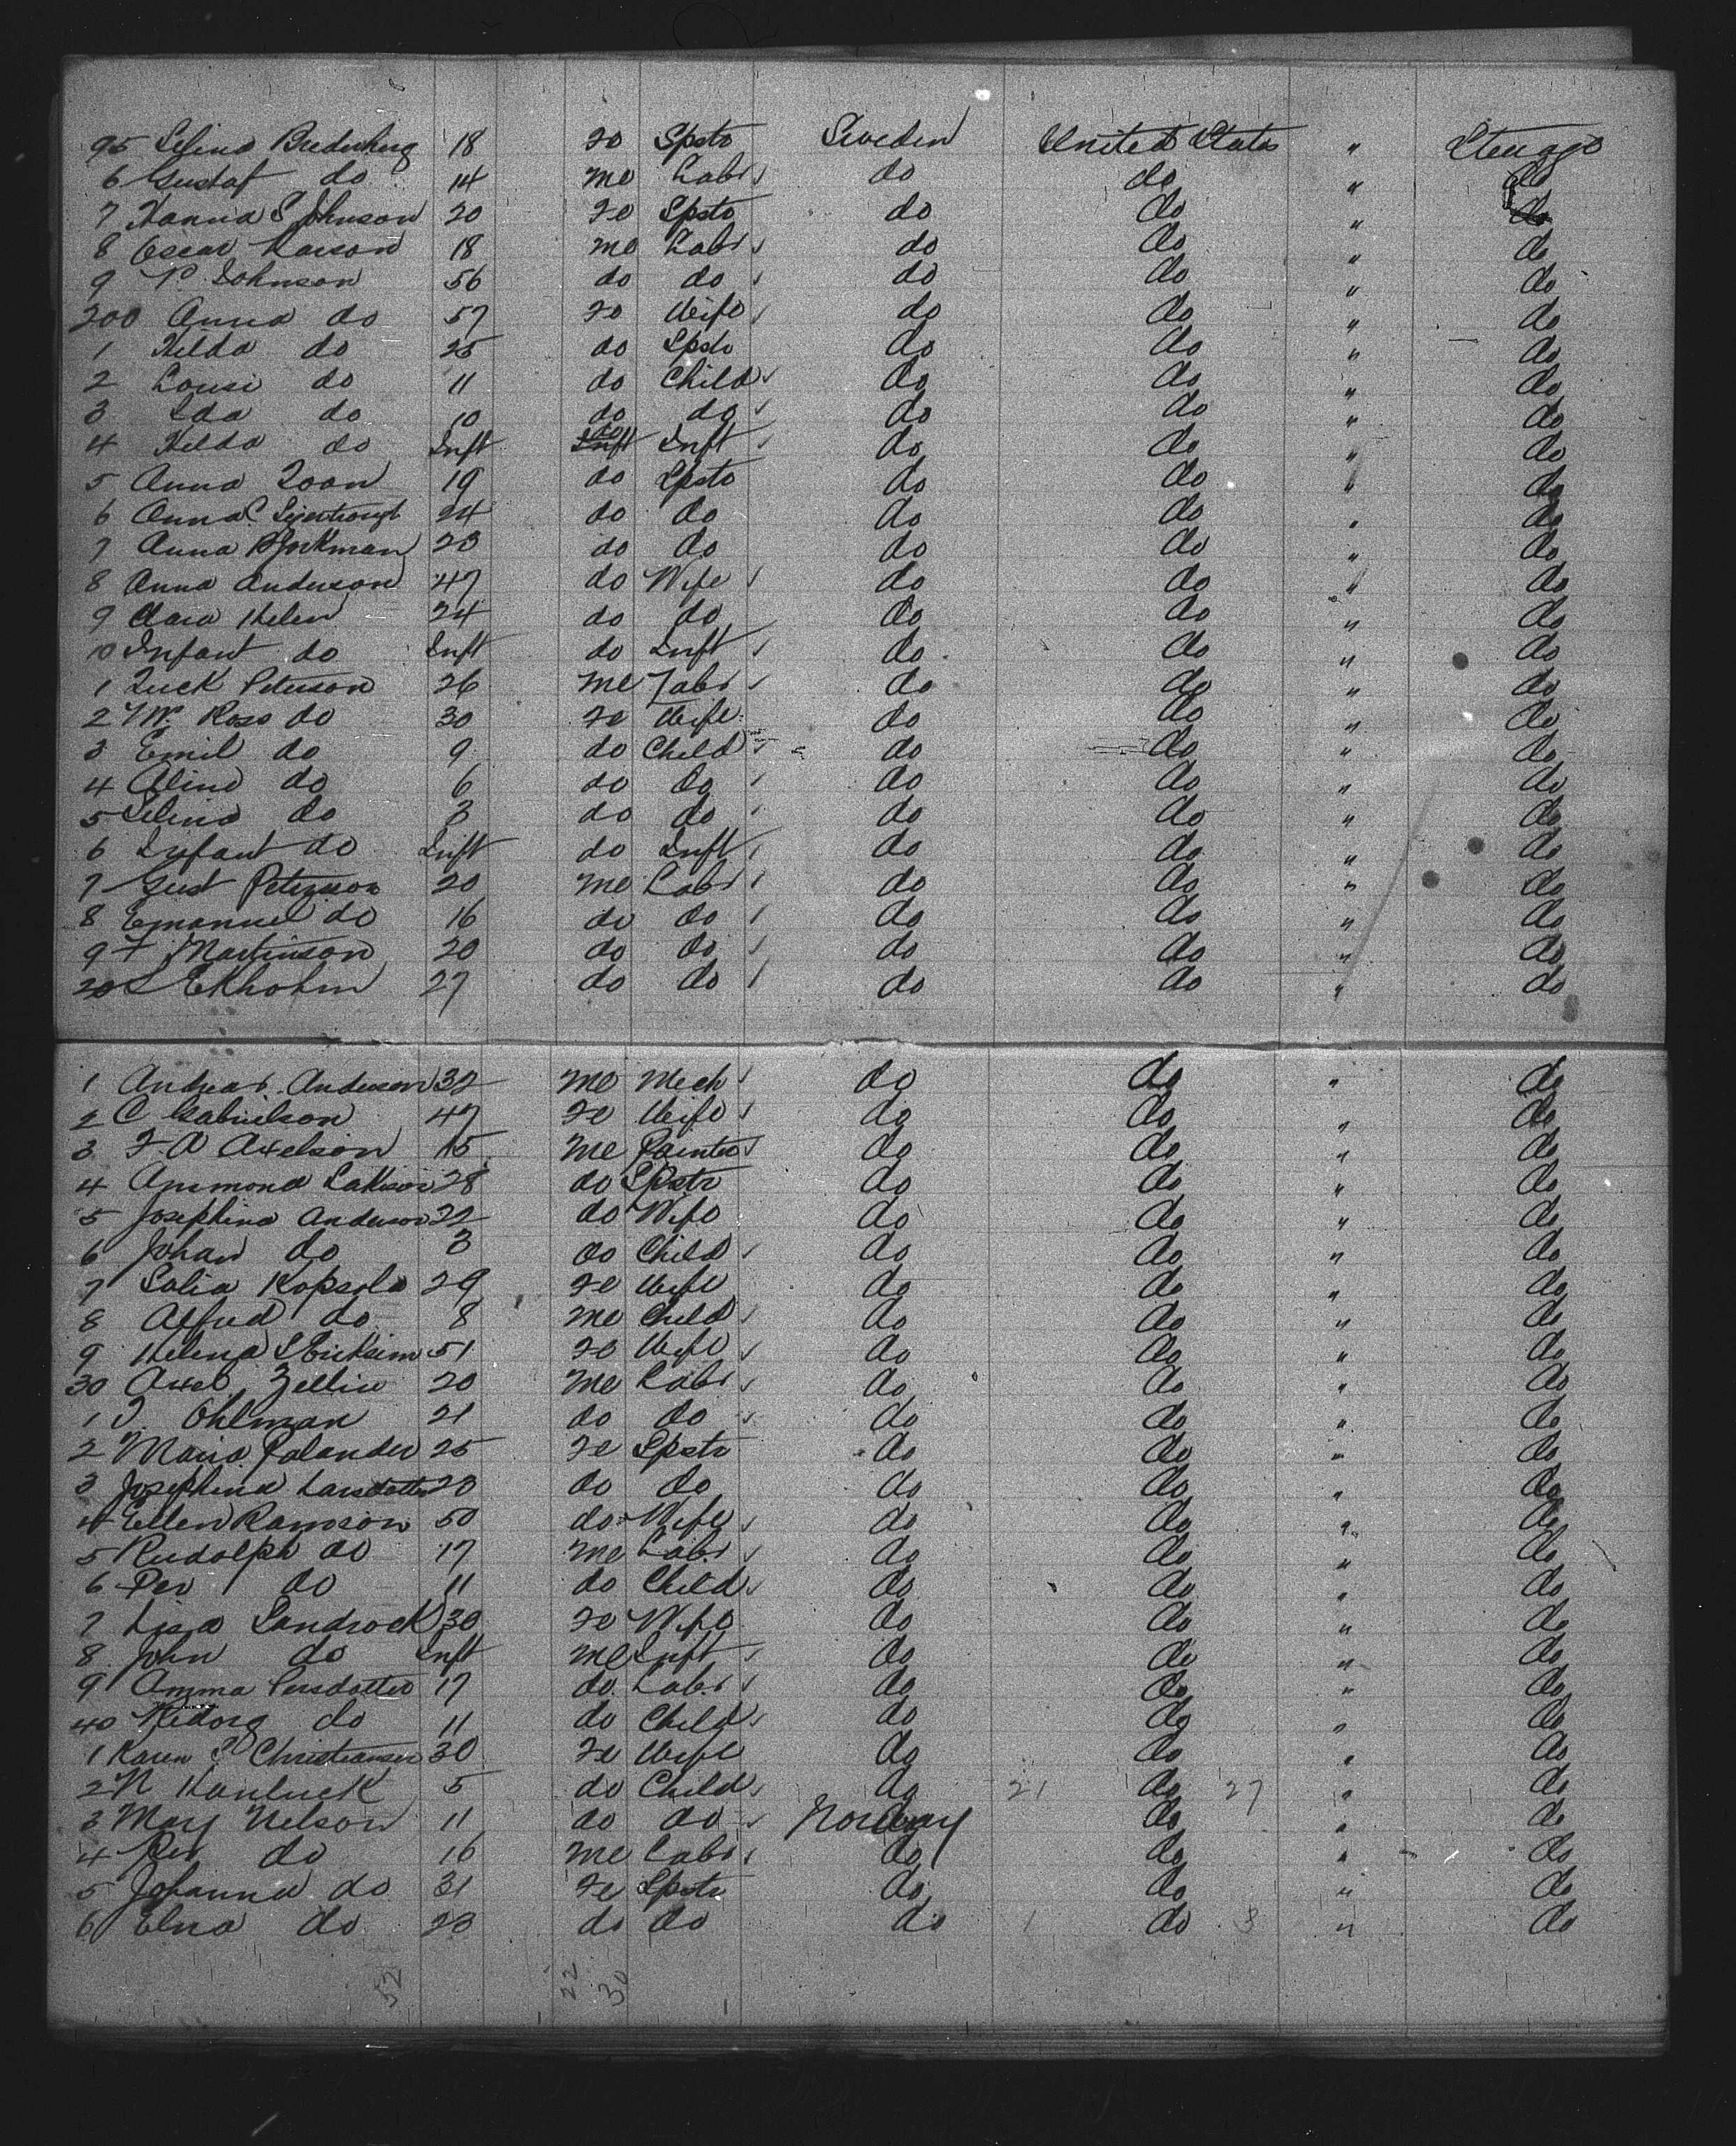 95 Selina Brederberg 18 Fe Spstr Sweden United States " Steerage
6 Gustaf do 14 Me Labr do do " do
7 Hanna S Johnson 20 Fe Spstr do do " do
8 Oscar Larson 18 Me Labr do do " do
9 P. Johnson 56 do do do do " do
200 Anna do 57 Fe Wife do do " do
1 Hilda do 25 do Spstr do do " do
2 Lousi do 11 do Child do do " do
3 Ida do 10 do do do do " do
4 Hilda do Inft do Inft do do " do
5 Anna 19 do Spstr do do " do
6 Anna C. 24 do do do do " do
7 Anna Bjorkman 23 do do do do " do
8 Anna Anderson 47 do Wife do do " do
9 Clara Helen 24 do do do do " do
10 Infant do Inft do Inft do do " do
1 Peterson 26 Me Labr do do " do
2 Ross do 30 Fe Wife do do " do
3 Emil do 9 do Child do do " do
4 Alina do 6 do do do do " do
5 Selina do 3 do do do do " do
6 Infant do Inft do Inft do do " do
7 Gust Peterson 20 Me Labr do do " do
8 Emanuel do 16 do do do do " do
9 F Martinson 20 do do do do " do
20 L Ekholm 27 do do do do " do
1 Andreas Anderson 32 Me Mech do do " do
2 C Gabrielson 47 Fe Wife do do " do
3 F. A Axelson 15 Me Painter do do " do
4 28 do Spstr do do " do
5 Josephina Anderson 22 do Wife do do " do
6 Johan do 3 do Child do do " do
7 Kopsola 29 Fe Wife do do " do
8 Alfred do 8 Me Child do do " do
9 Helena S 51 Fe Wife do do " do
30 Axel Zellin 20 Me Labr do do " do
1 J. Ohlman 21 do do do do " do
2 Maria Palander 25 Fe Spstr do do " do
3 Josephina Larsdotter 20 do do do do " do
4 Ellen Ramson 50 do Wife do do " do
5 Rudolph do 17 Me Labr do do " do
6 Per do 11 do Child do do " do
7 Lisa Sandrock 30 Fe Wife do do " do
8 John do Inft Me Inft do do " do
9 Amma Persdotter 17 do Labr do do " do
40 do 11 do Child do do " do
1 Karen Christiansen 30 Fe Wife do do " do
2 N 5 do Child do 21 do 27 " do
3 Mary Nelson 11 do do Norway do " do
4 Per do 16 Me Labr do do " do
5 Johanna do 31 Fe Spstr do do " do
6 Elna do 23 do do do 1 do 3 " do
52 22 30